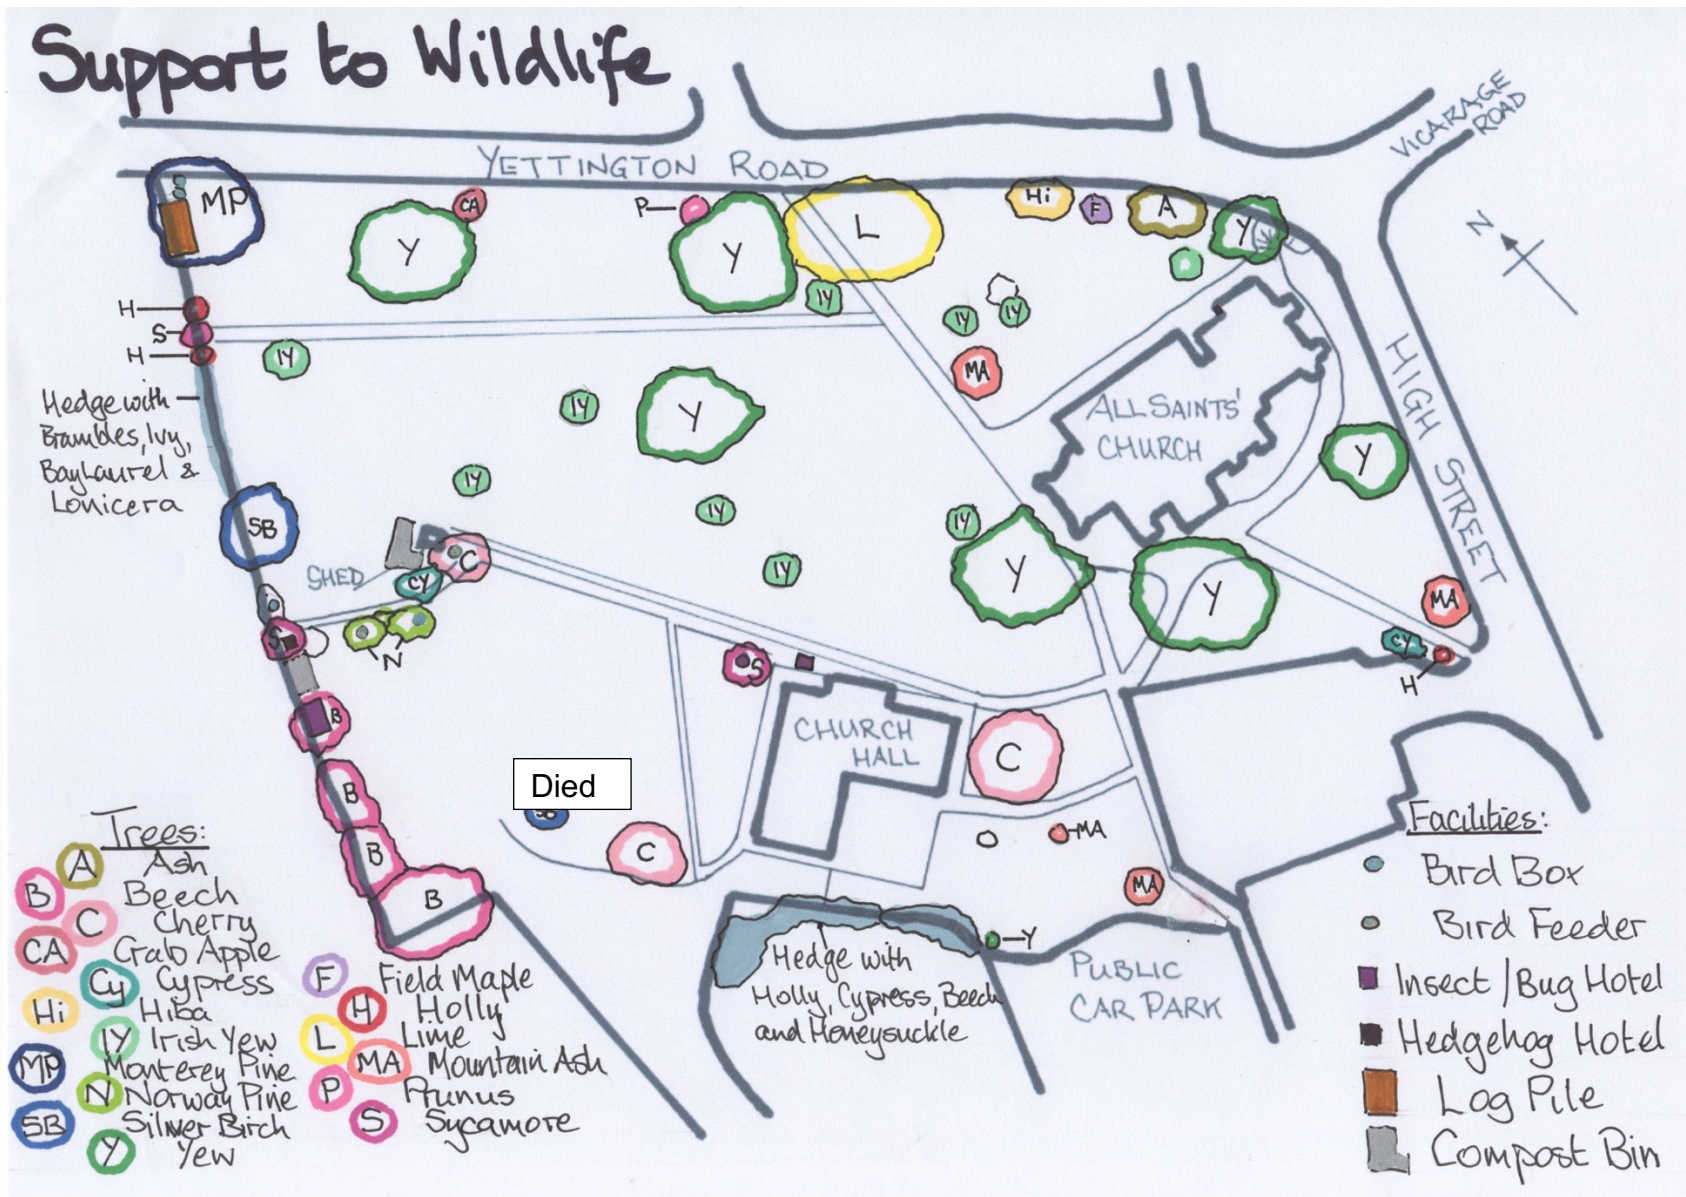 Support to Wildlife
YETTINGTON ROAD
VICARAGE
ROAD
MP
CA
P
Y
Y
L
Hi
F
A
Y
N
H
S
H
IY
IY
IY
IY
MA
Hedge with
Brambles, Ivy,
Bay Laurel &
Lonicera
IY
Y
ALL SAINTS'
CHURCH
HIGH STREET
Y
SB
IY
IY
IY
IY
Y
Y
SHED
C
CY
N
S
S
MA
CY
H
B
CHURCH
HALL
C
B
Died
SB
B
C
MA
MA
B
Y
Hedge with
Holly, Cypress, Beech
and Honeysuckle
PUBLIC
CAR PARK
Trees:
A Ash
B Beech
C Cherry
CA Crab Apple
Cy Cypress
Hi Hiba
IY Irish Yew
MP Monterey Pine
N Norway Pine
SB Silver Birch
Y Yew
F Field Maple
H Holly
L Lime
MA Mountain Ash
P Prunus
S Sycamore
Facilities:
Bird Box
Bird Feeder
Insect/Bug Hotel
Hedgehog Hotel
Log Pile
Compost Bin